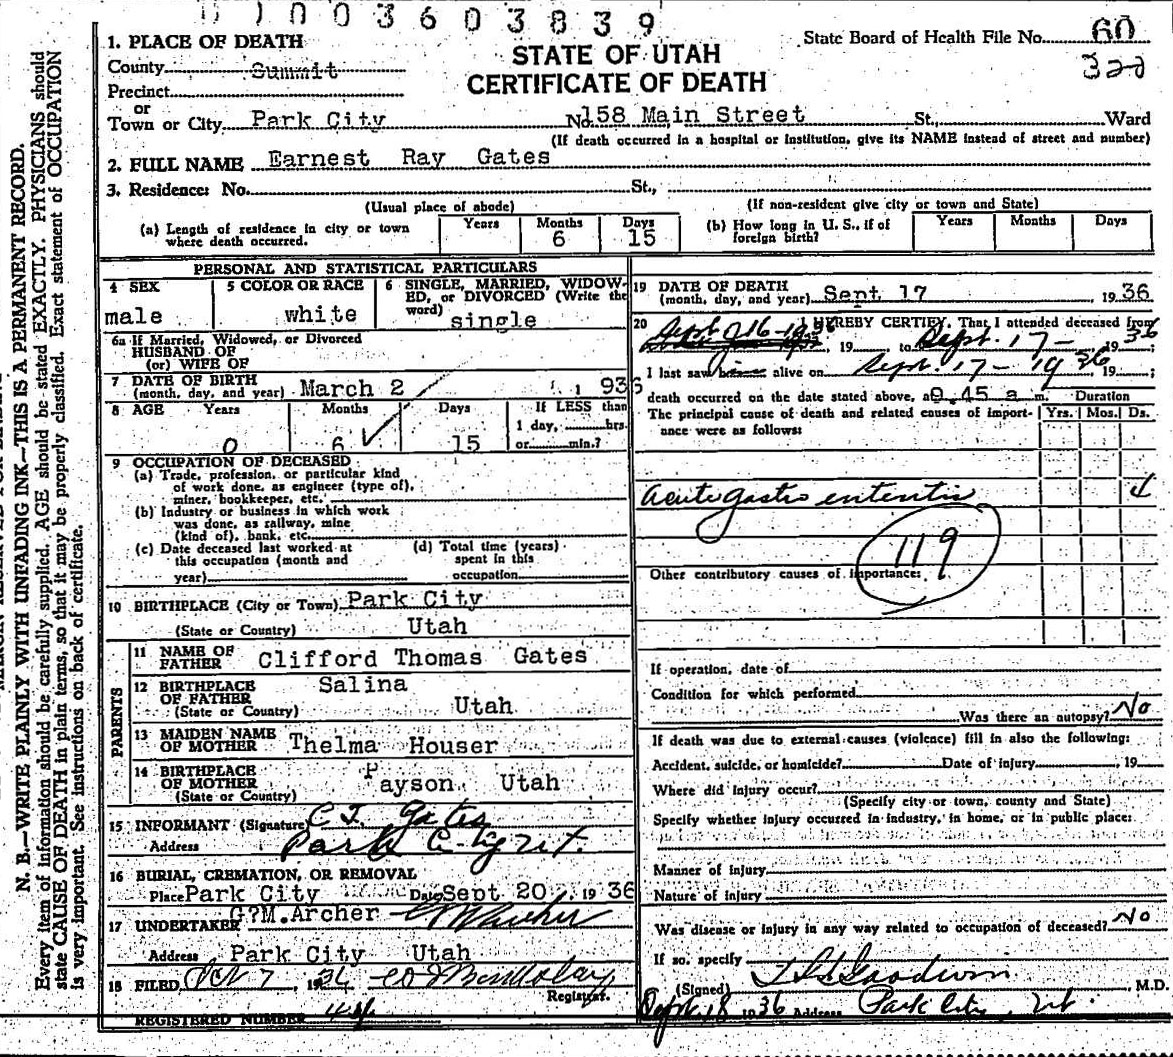 1003603839
1. PLACE OF DEATH
STATE OF UTAH
CERTIFICATE OF DEATH
State Board of Health File No. 60
322
County Summit
Precinct
or
Town or City Park City No. 158 Main Street St., Ward
(If death occurred in a hospital or institution, give its NAME instead of street and number)
2. FULL NAME Earnest Ray Gates
3. Residence: No. St.,
(Usual place of abode) (If non-resident give city or town and State)
(a) Length of residence in city or town where death occurred. Years Months 6 Days 15
(b) How long in U. S., if of foreign birth? Years Months Days
PERSONAL AND STATISTICAL PARTICULARS
4 SEX male
5 COLOR OR RACE white
6 SINGLE, MARRIED, WIDOWED, or DIVORCED (Write the word) single
6a If Married, Widowed, or Divorced
HUSBAND OF
(or) WIFE OF
7 DATE OF BIRTH (month, day, and year) March 2 1936
8 AGE Years 0 Months 6 Days 15 If LESS than 1 day, hrs. or min.?
9 OCCUPATION OF DECEASED
(a) Trade, profession, or particular kind
of work done, as engineer (type of),
miner, bookkeeper, etc.
(b) Industry or business in which work
was done, as railway, mine
(kind of), bank, etc.
(c) Date deceased last worked at
this occupation (month and
year)
(d) Total time (years)
spent in this
occupation
10 BIRTHPLACE (City or Town) Park City
(State or Country) Utah
PARENTS
11 NAME OF FATHER Clifford Thomas Gates
12 BIRTHPLACE OF FATHER Salina
(State or Country) Utah
13 MAIDEN NAME OF MOTHER Thelma Houser
14 BIRTHPLACE OF MOTHER Payson Utah
(State or Country)
15 INFORMANT (Signature) C. T. Gates
Address Park City Ut.
16 BURIAL, CREMATION, OR REMOVAL
Place Park City Date Sept 20, 1936
17 UNDERTAKER G?M.Archer
Address Park City Utah
18 FILED, Oct 7, 1936
Registrar.
REGISTERED NUMBER
19 DATE OF DEATH
(month, day, and year) Sept 17 1936
20 I HEREBY CERTIFY, That I attended deceased from
Sept 16-1936, 19 to Sept. 17- 1936;
I last saw him alive on Sept. 17-1936, 19 ;
death occurred on the date stated above, a 9.45 a m. Duration
The principal cause of death and related causes of importance were as follows: Yrs. Mos. Ds.
Acute gastro enteritis 4
119
Other contributory causes of importance:
If operation, date of
Condition for which performed
Was there an autopsy? No
If death was due to external causes (violence) fill in also the following:
Accident, suicide, or homicide? Date of injury , 19
Where did injury occur?
(Specify city or town, county and State)
Specify whether injury occurred in industry, in home, or in public place:
Manner of injury
Nature of injury
Was disease or injury in any way related to occupation of deceased? No
If so, specify
(Signed) Goodwin M.D.
Sept. 18 1936 Address Park City, Ut.
N. B.—WRITE PLAINLY WITH UNFADING INK—THIS IS A PERMANENT RECORD.
Every item of information should be carefully supplied. AGE should be stated EXACTLY. PHYSICIANS should
state CAUSE OF DEATH in plain terms, so that it may be properly classified. Exact statement of OCCUPATION
is very important. See instructions on back of certificate.